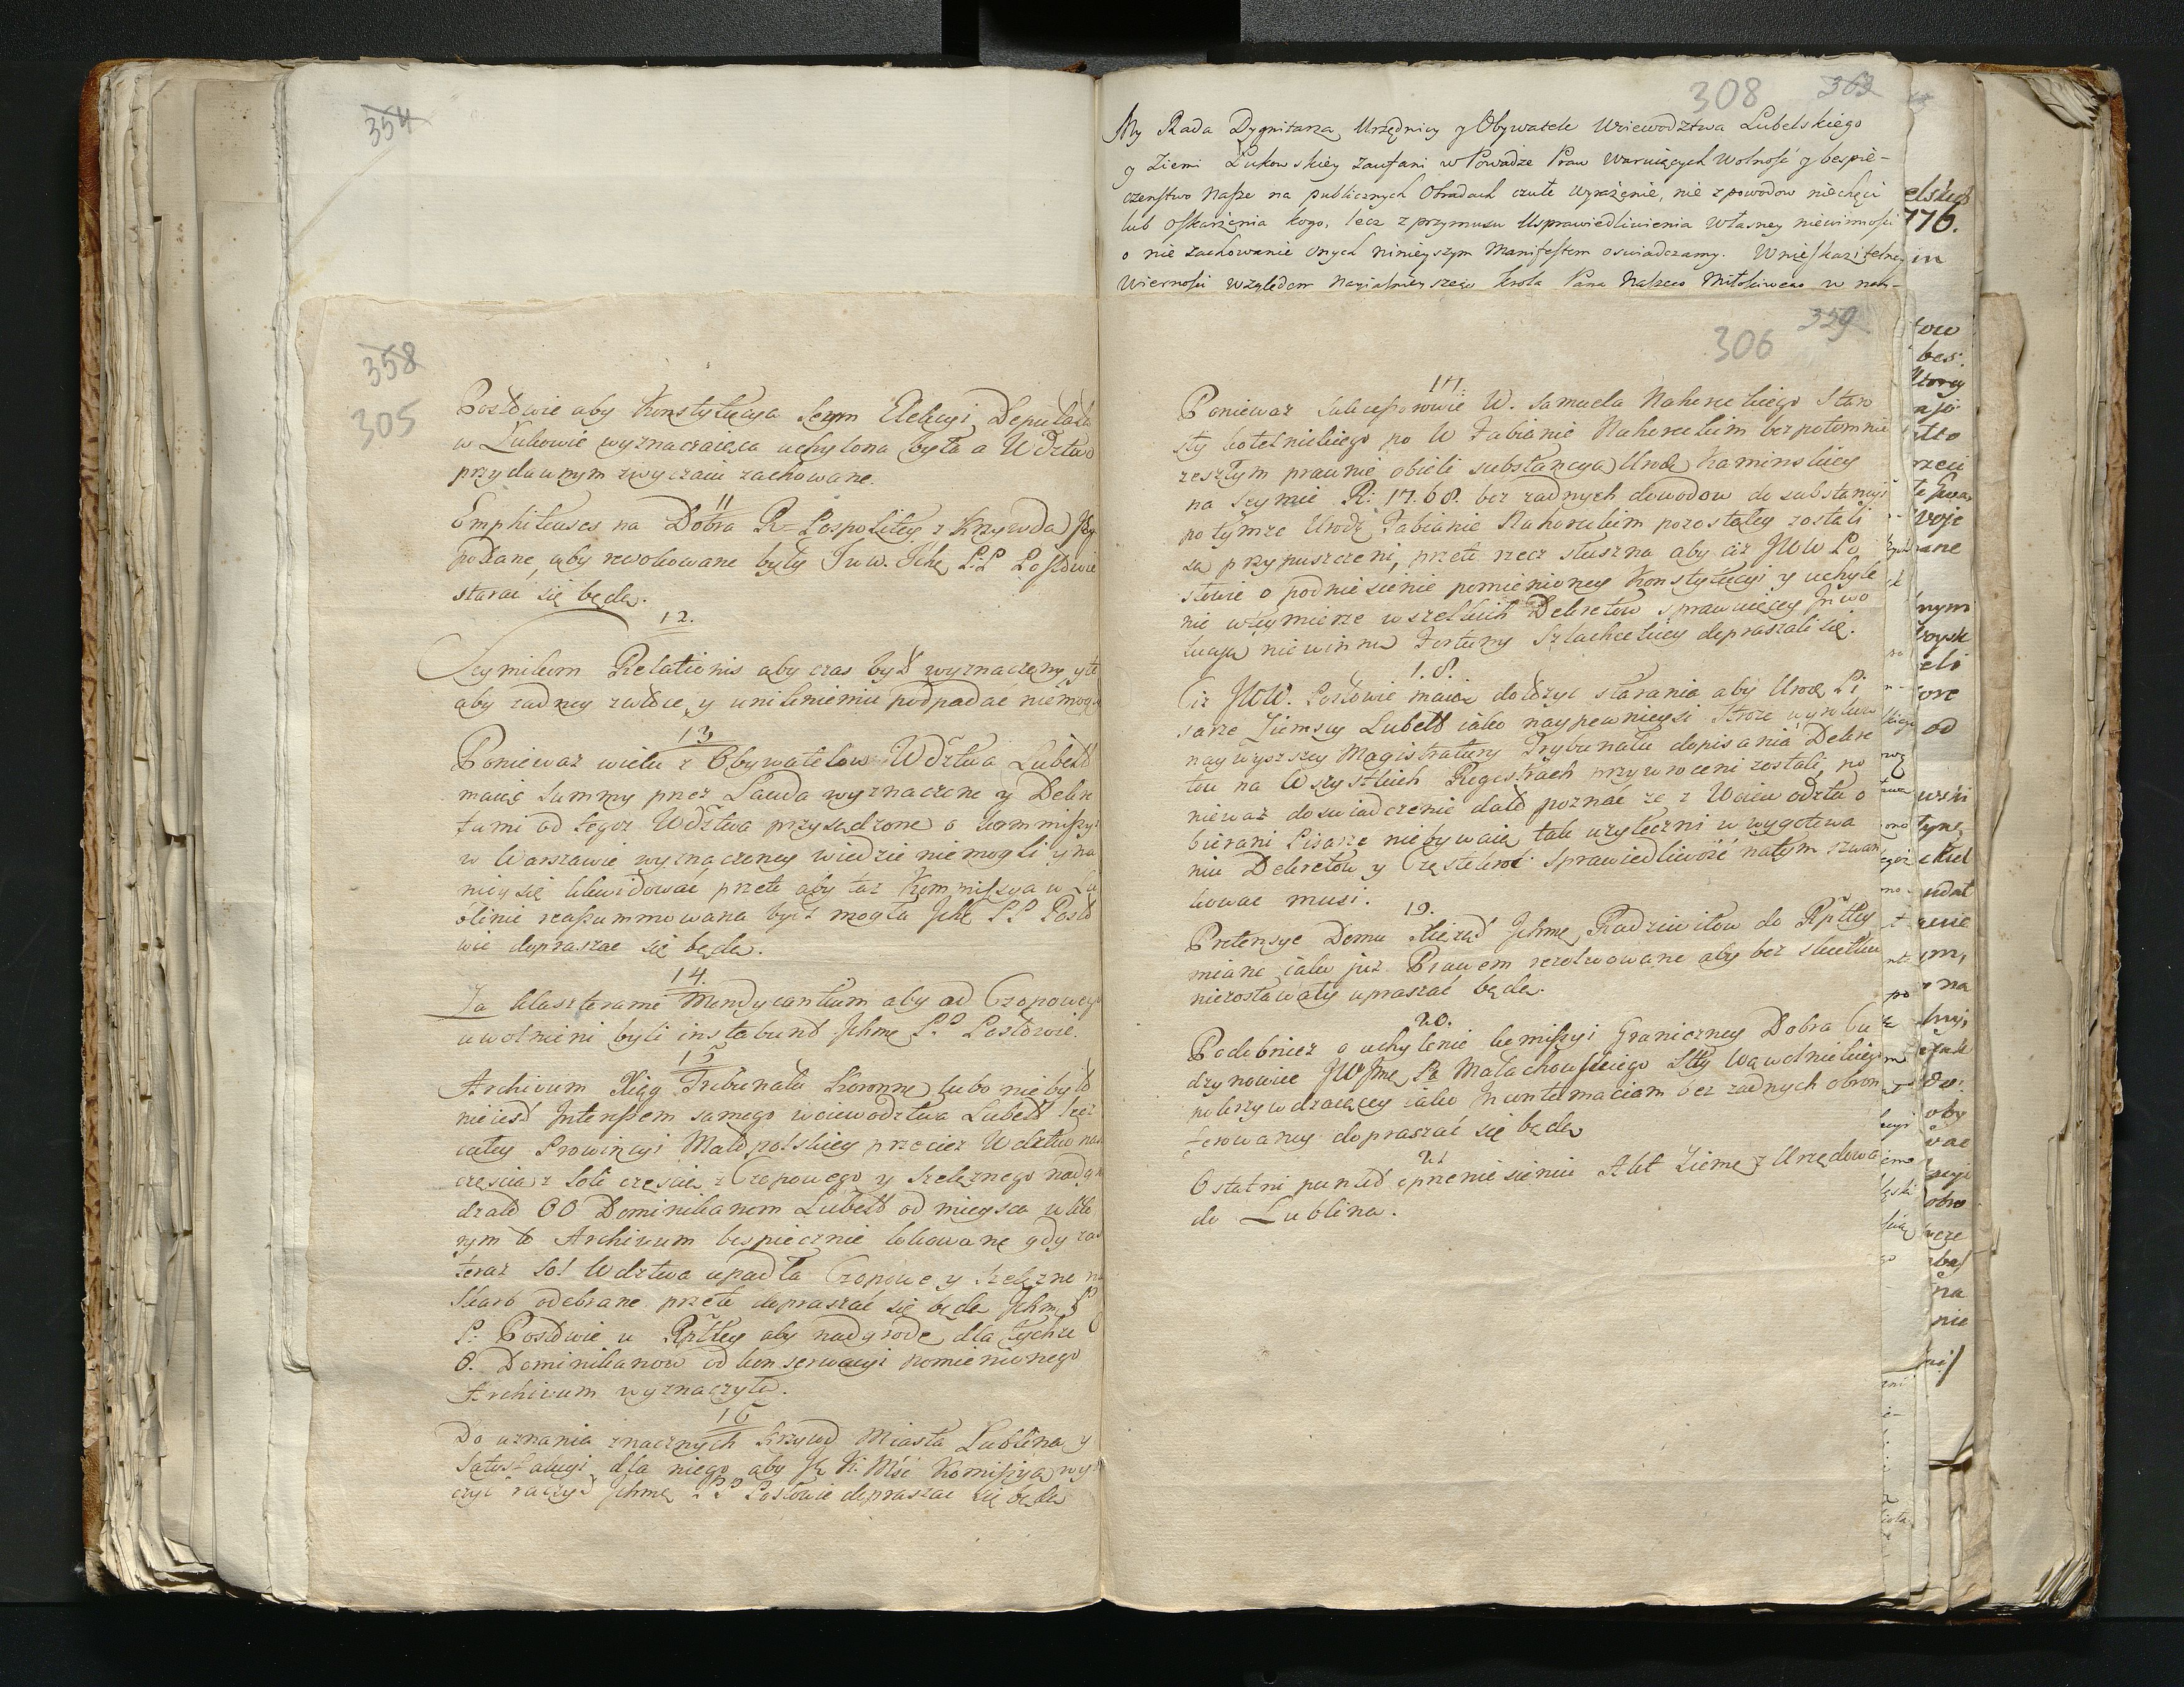 354
358
305
Posłowie aby Konstytucya Seym Elekcyi Deputack
w Lukowie wyznaczaiąca uchylona była a Wdztwo
przy dawnym zwyczaiu zachowane.
11
Emphiteuses na Dobra R-Pospolitey z Krzywdą Jey
podane, aby rewokowane były Jww. Ichę PP Posłowie
starać się będą.
12.
Seymikom Relationis aby czas był wyznaczony
aby żadney zwłoce y uniknieniu podpadać niemogł
13
Poniewaz wielu z Obywatelow Wdztwa Lubelł
maiąc Summy przez Lauda wyznaczone y Dekre
tami od tegoz Wdztwa przysądzone o kommissyi
w Warszawie wyznaczoney wiedzie niemogli y na
niey się likwidować, przeto aby taz Kommissya w Lu
blinie reassummowana być mogła Ichę PP Posło
wie dopraszać się będą.
14.
Za klasztorami Mendycantium aby od Czopowego
uwolnieni byli instabunt Ichmę PP Posłowie.
15
Archivum Xiąg Tribunału Koronne lubo nie był
nie iest Interessem samego woiewodztwa Lubelł lecz
całey Prowincyi Małopolskiey przecież Wdztwo
częścią z Soli częścią z Czopowego y Szelężnego nadgra
dzało OO Dominikanom Lubelł od mieysca w któ
rym to Archivum bespiecznie lokowane gdy zas
teraz Sol Wdztwa upadła Czopowe y Szelęzne na
Skarb odebrane przeto dopraszać się będą Ichm P
P. Posłowie u Rpltey aby nadgrodę dla tychze O
O. Dominikanow od konserwacyi pomienionego
Archivum wyznaczyła.
16
Do uznania znacznych Krzywd Miasta Lublina y
Satysfakcyi dla niego aby J. K. Mść Komissyą wy
czyć raczył Ichmę PP Posłowie dopraszać się będą
308 363
My Rada Dygnitarze Urzędnicy y Obywatele Woiewodztwa Lubelskiego
y Ziemi Łukowskiey zaufani w Powadze Praw waruiących Wolność y bespie-
czenstwo Nasze na publicznych Obradach czułe wyrażenie, nie z powodow niechęci
lub oskarżenia kogo, lecz z przymusu Usprawiedliwienia własney niewinności
o nie zachowanie onych ninieyszym Manifestem oswiadczamy. W nieskazitelney
Wierności względem Nayiasnieyszego Krola Pana Naszego Miłościwego w
306 359
17.
Poniewaz Sukcessorowie W. Samuela Nahoreckiego Staro
sty kotelnickiego po W Fabianie Nahoreckim bezpotomnie
zeszłym prawnie obieli substancyą Urodz Kaminskiey
na Seymie R: 17.68. bez zadnych dowodow do substancyi
po tymze Urodz Fabianie Nahoreckim pozostałey zostali
są przypuszczeni, przeto rzecz słuszna aby ciz JWW Po
słowie o podniesienie pomienioney Konstytucyi y uchyle
nie w teymierze wszelkich Dekretow sprawuiącey Inwo
lucyą niewinną Fortuny Szlacheckiey dopraszali się.
1.8.
Ciz JWW. Posłowie maią dołozyc starania aby Urodz Pi
sarze Ziemscy Lubelł iako naypewnieysi Stroze wyrokow
naywyzszey Magistratury Trybunału do pisania Dekre
tow na Wszystkich Regestrach przywroceni zostali, po
niewaz doswiadczenie dało poznać ze z Woiewodztw o
bierani Pisarze niebywaią tak uzyteczni w wygotowa
niu Dekretow y Częstokroć Sprawiedliwość natym szwan
kować musi.
19.
Pretensye Domu Xiąząt Ichmę Radziwiłow do Rpltey
miane iako iuz Prawem rezolwowane aby bez skutku
niezostawały upraszać będą.
20.
Podobniez o uchylenie komissyi Graniczney Dobra Cu
dzynowice JWJmę Pa Małachowskiego Stty Wąwolnickiego
pokrzywdzaiącey iako Incontumaciam bez zadnych obron
ferowaney dopraszać się będą
21
Ostatni punkt o przeniesieniu Akt Ziemę z Urzędowa
do Lublina.
776.